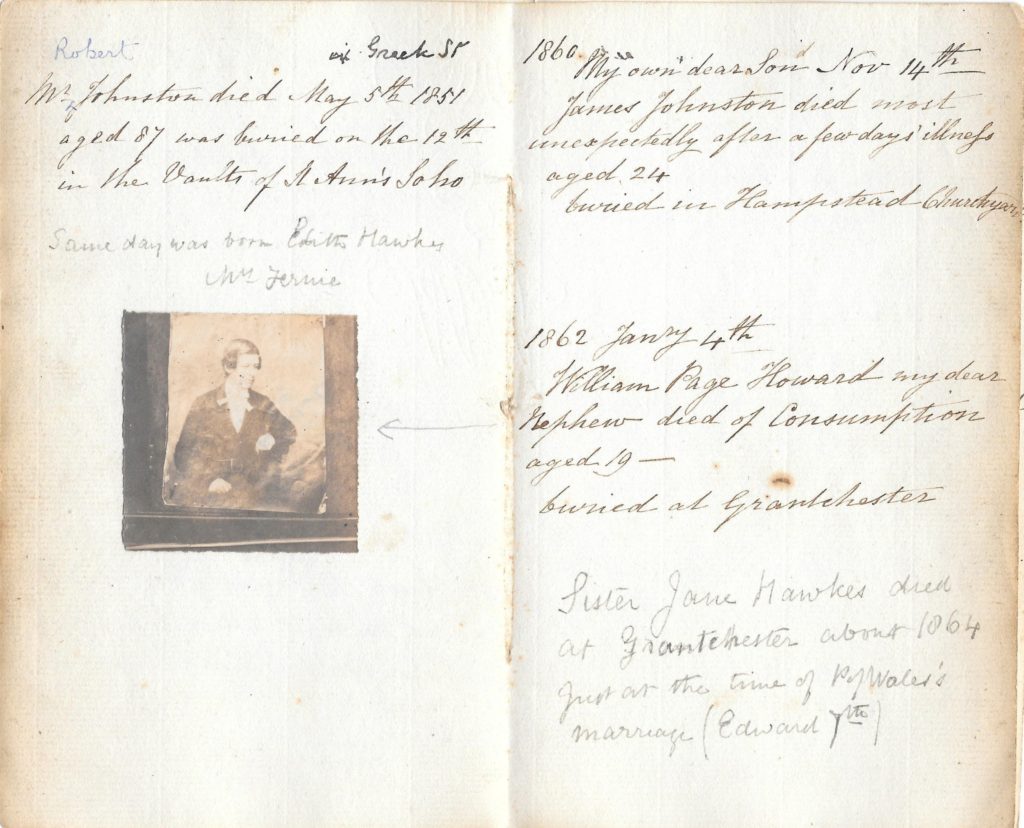 Robert
in Greek St
Mr Johnston died May 5th 1851
aged 87 was buried on the 12th
in the Vaults of St Ann's Soho
Same day was born Edith Hawkes
Mrs Fernie
1860
My own dear Son Nov 14th
James Johnston died most
unexpectedly after a few days' illness
aged 24
buried in Hampstead Churchyard
1862 Jany 4th
William Page Howard my dear
Nephew died of Consumption
aged 19 —
buried at Grantchester
Sister Jane Hawkes died
at Grantchester about 1864
just at the time of P of Wales's
marriage (Edward 7th)